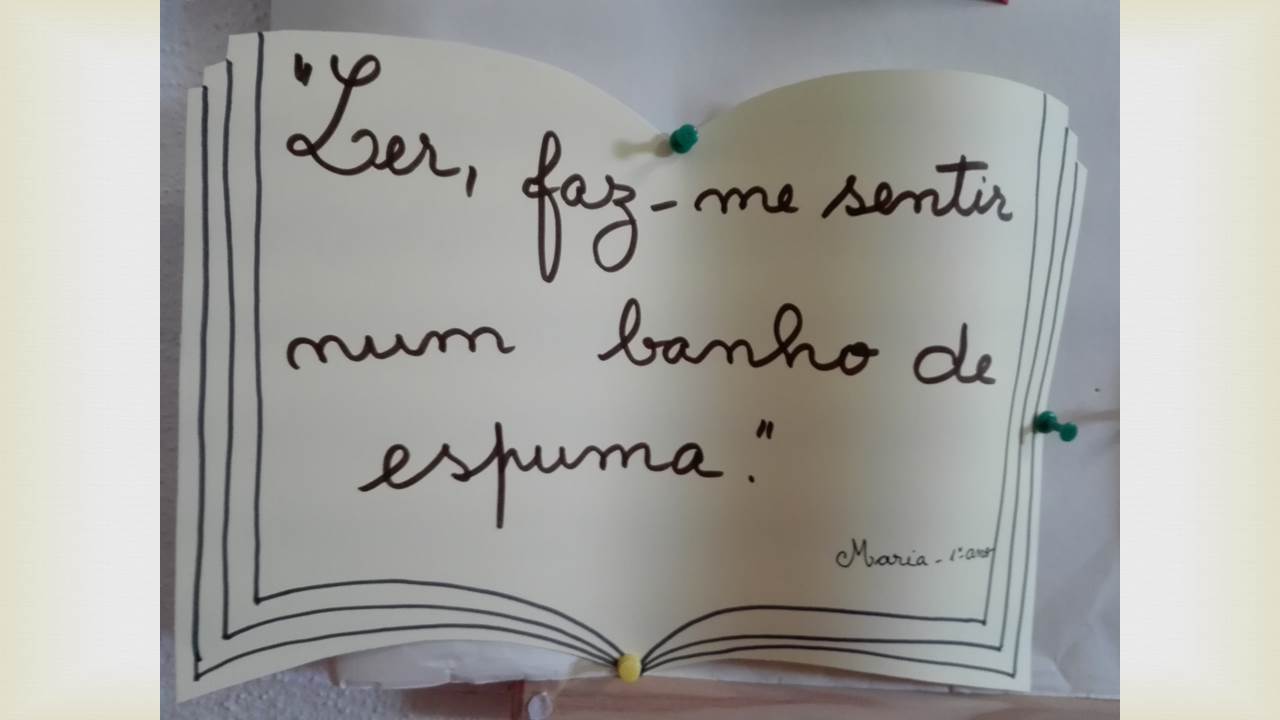 "Ler, faz-me sentir
num banho de
espuma."
Maria - 1º ano